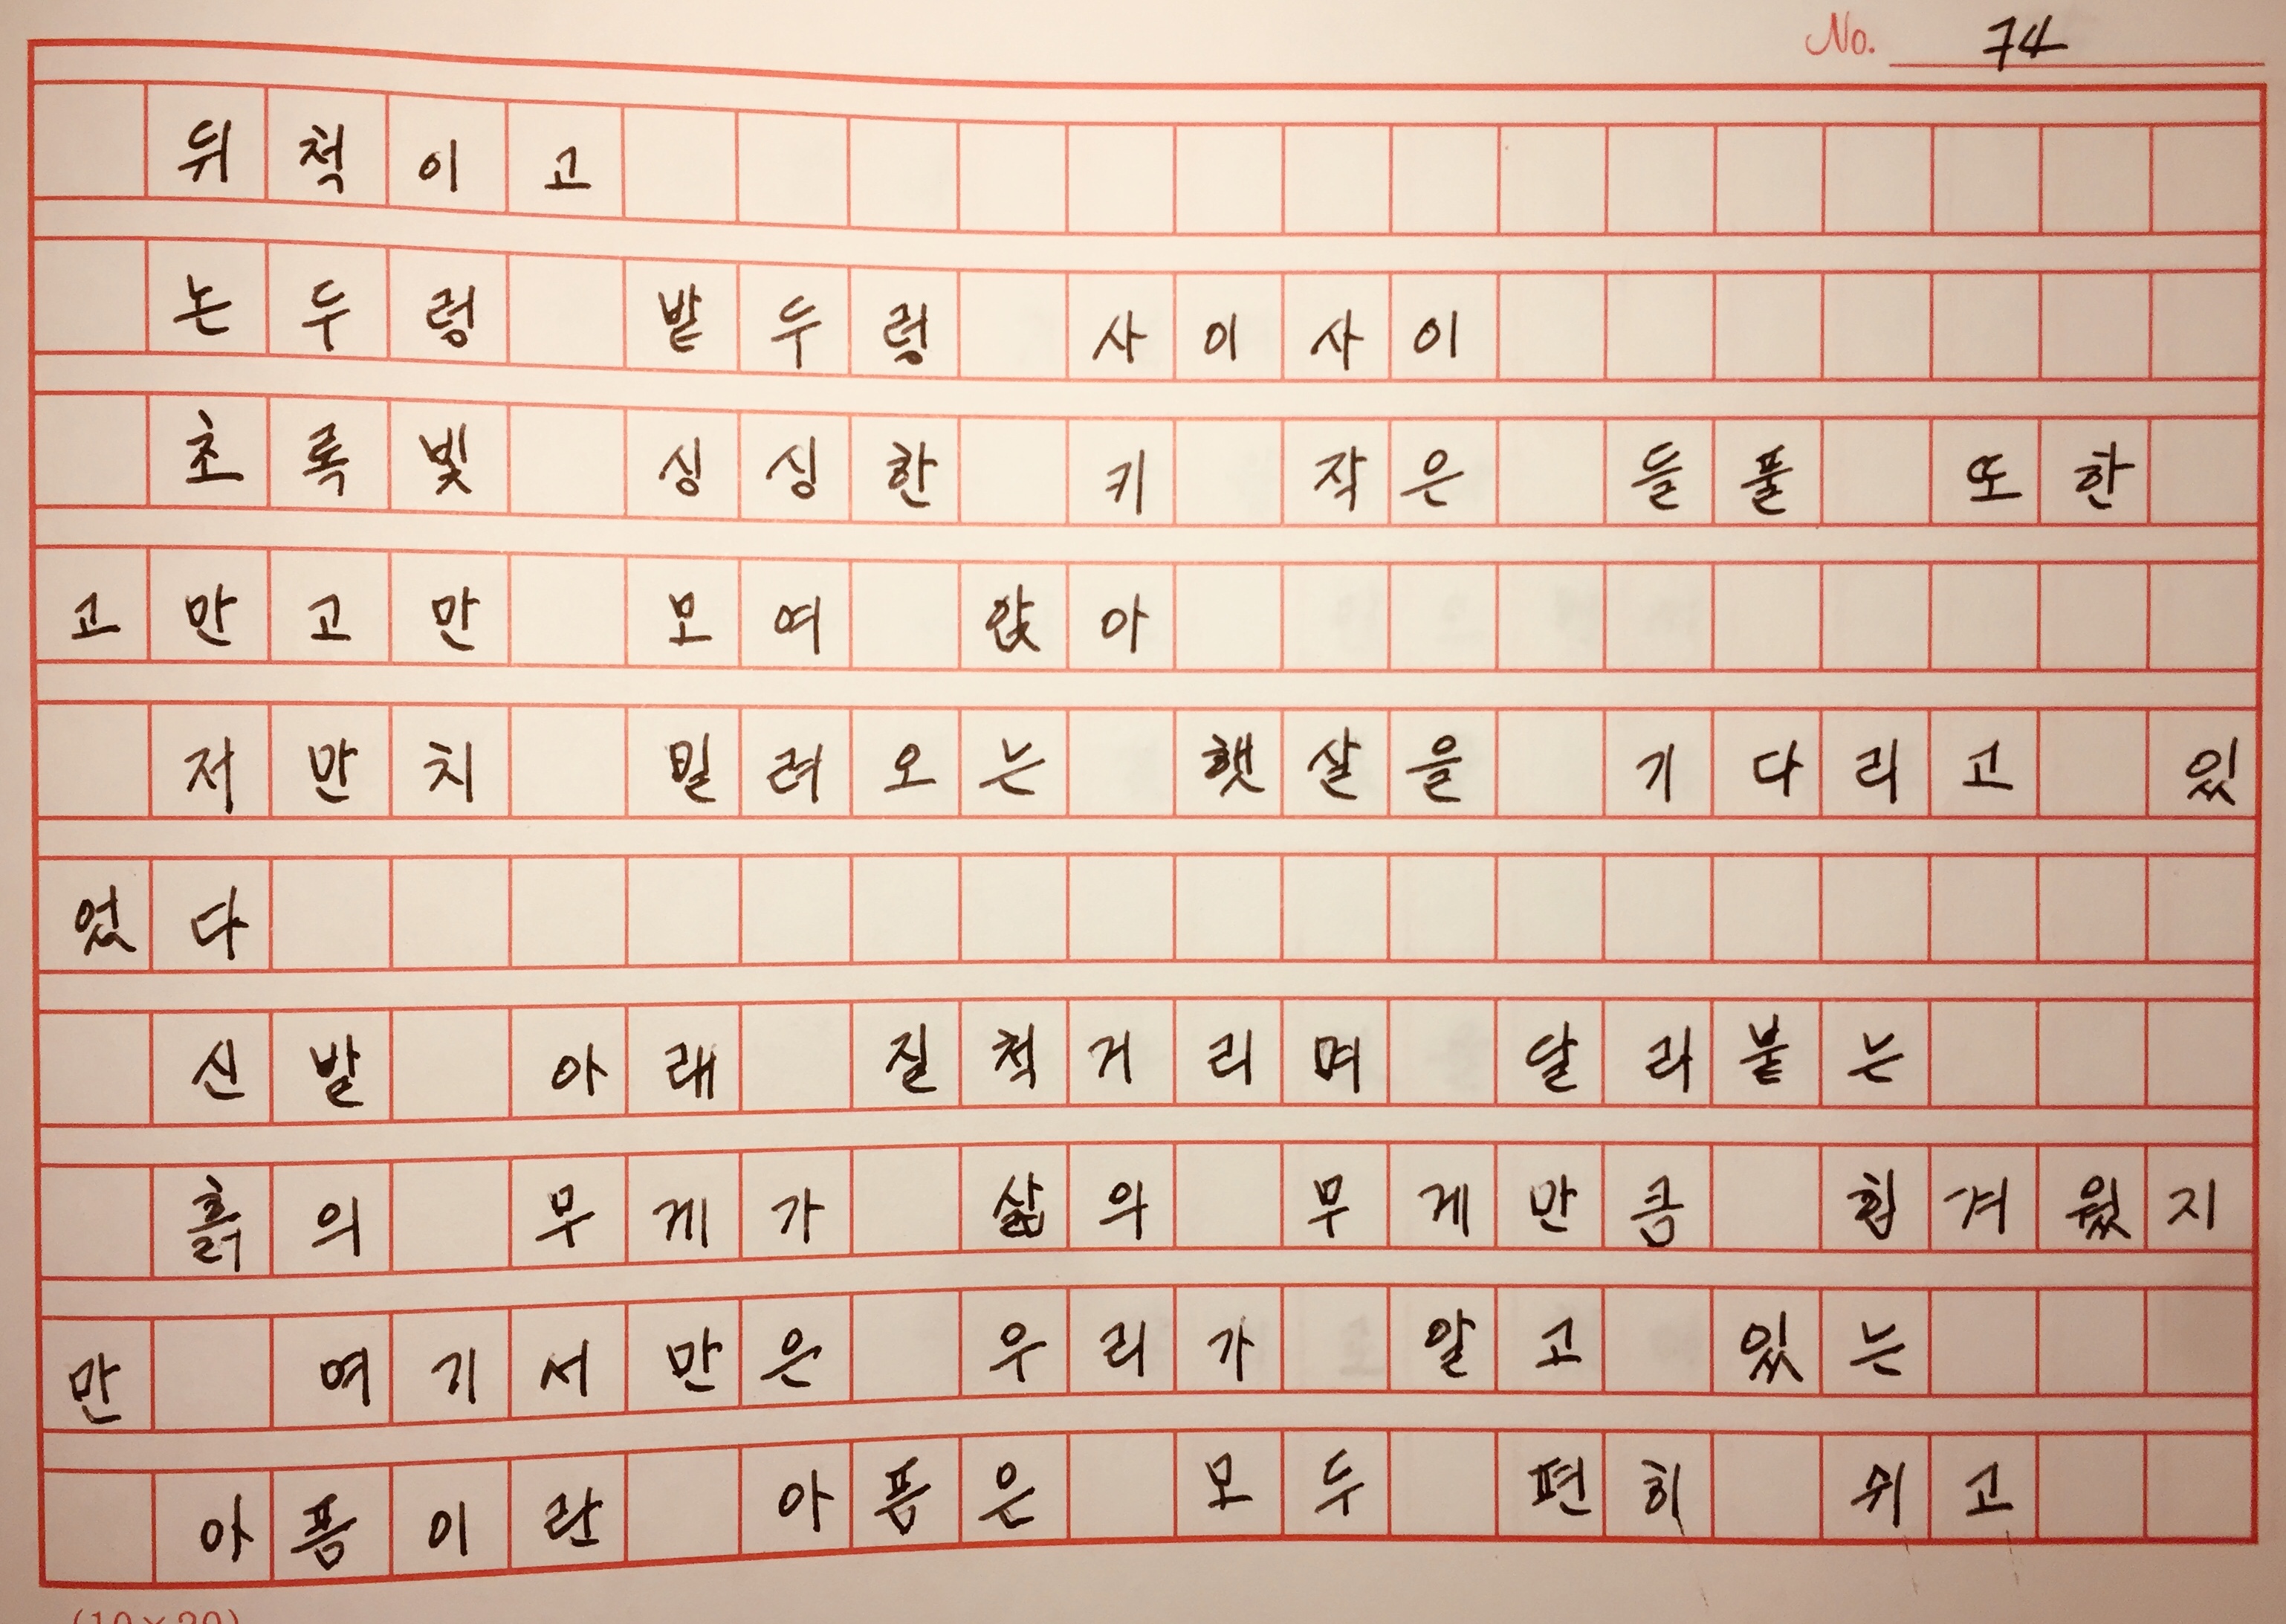 No. 74
뒤척이고
논두렁 밭두렁 사이사이
초록빛 싱싱한 키 작은 들풀 또한
고만고만 모여 앉아
저만치 밀려오는 햇살을 기다리고 있
었다
신발 아래 질척거리며 달라붙는
흙의 무게가 삶의 무게만큼 힘겨웠지
만 여기서만은 우리가 알고 있는
아픔이란 아픔은 모두 편히 쉬고
(10×20)